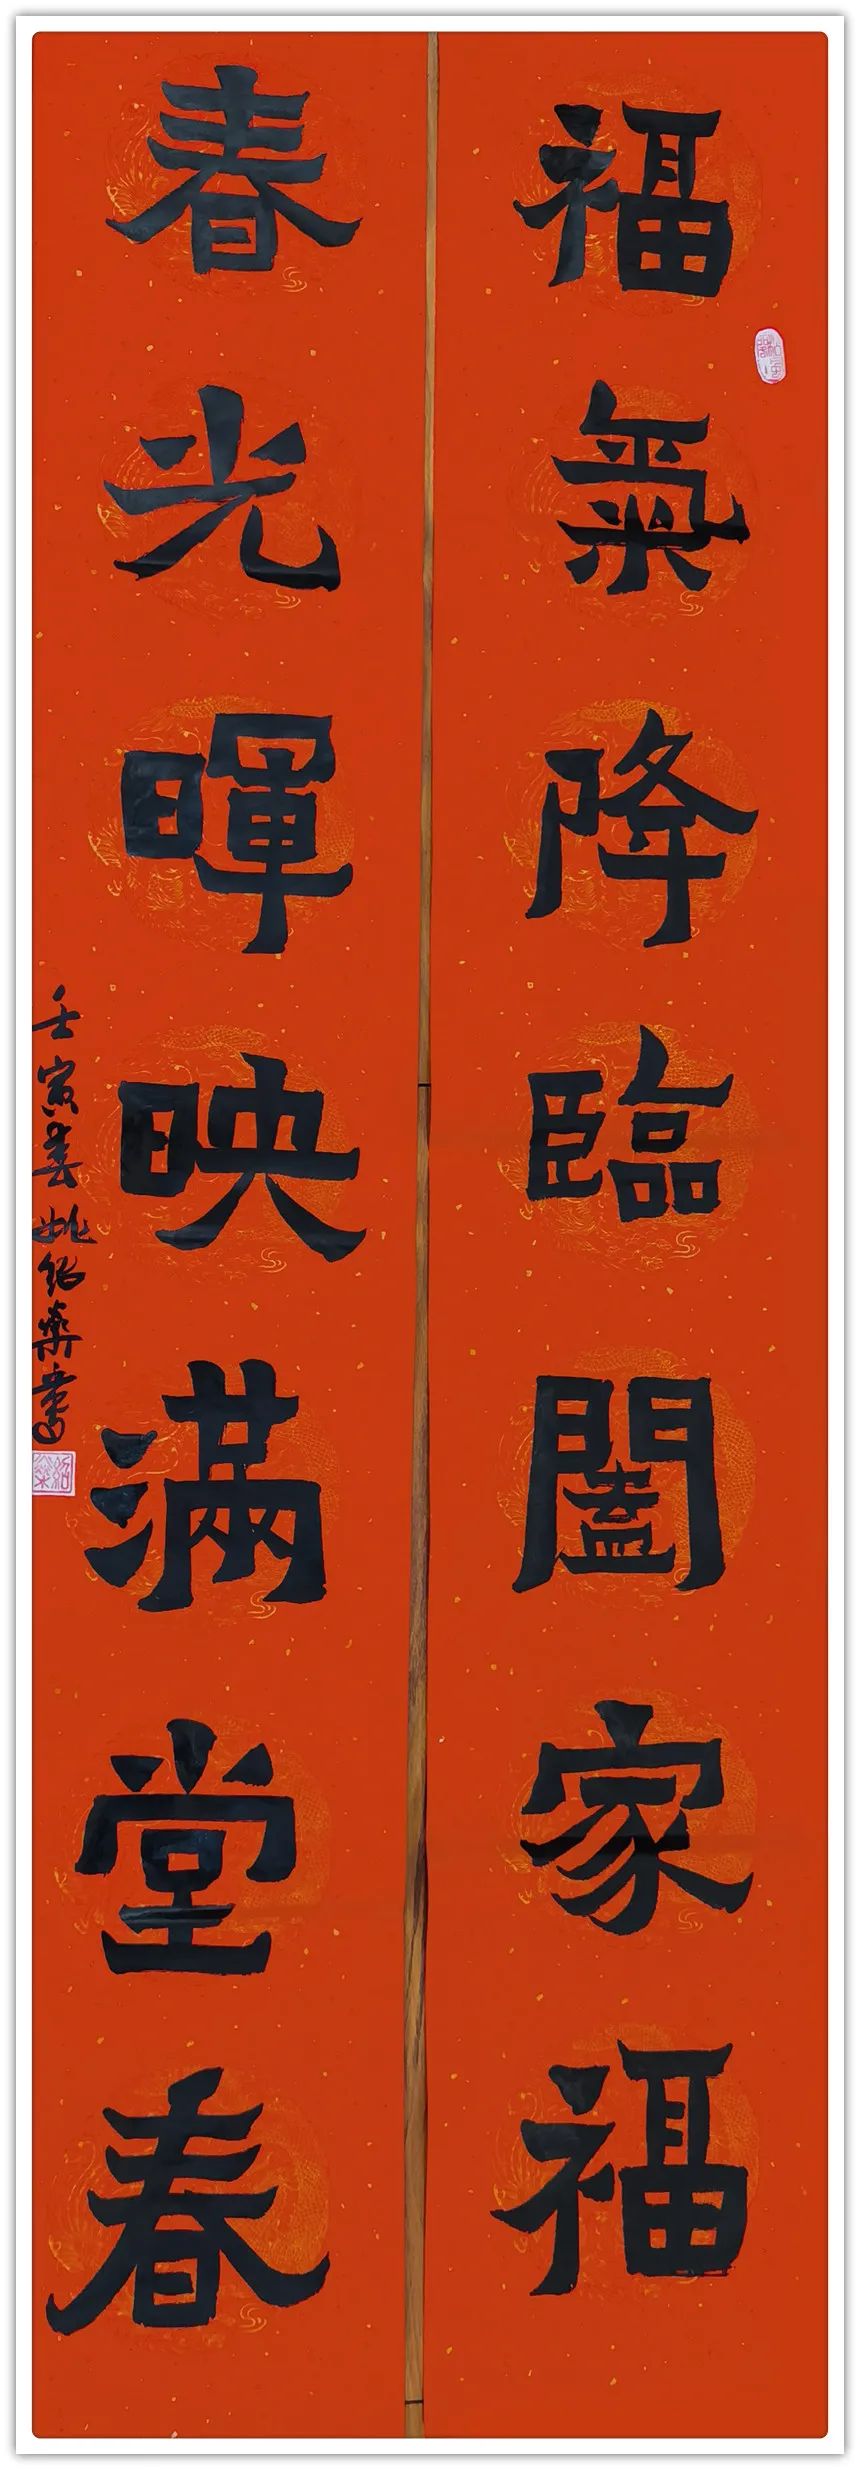 福氣降臨闔家福
春光暉映滿堂春
壬寅春姚紹燊書
紹燊